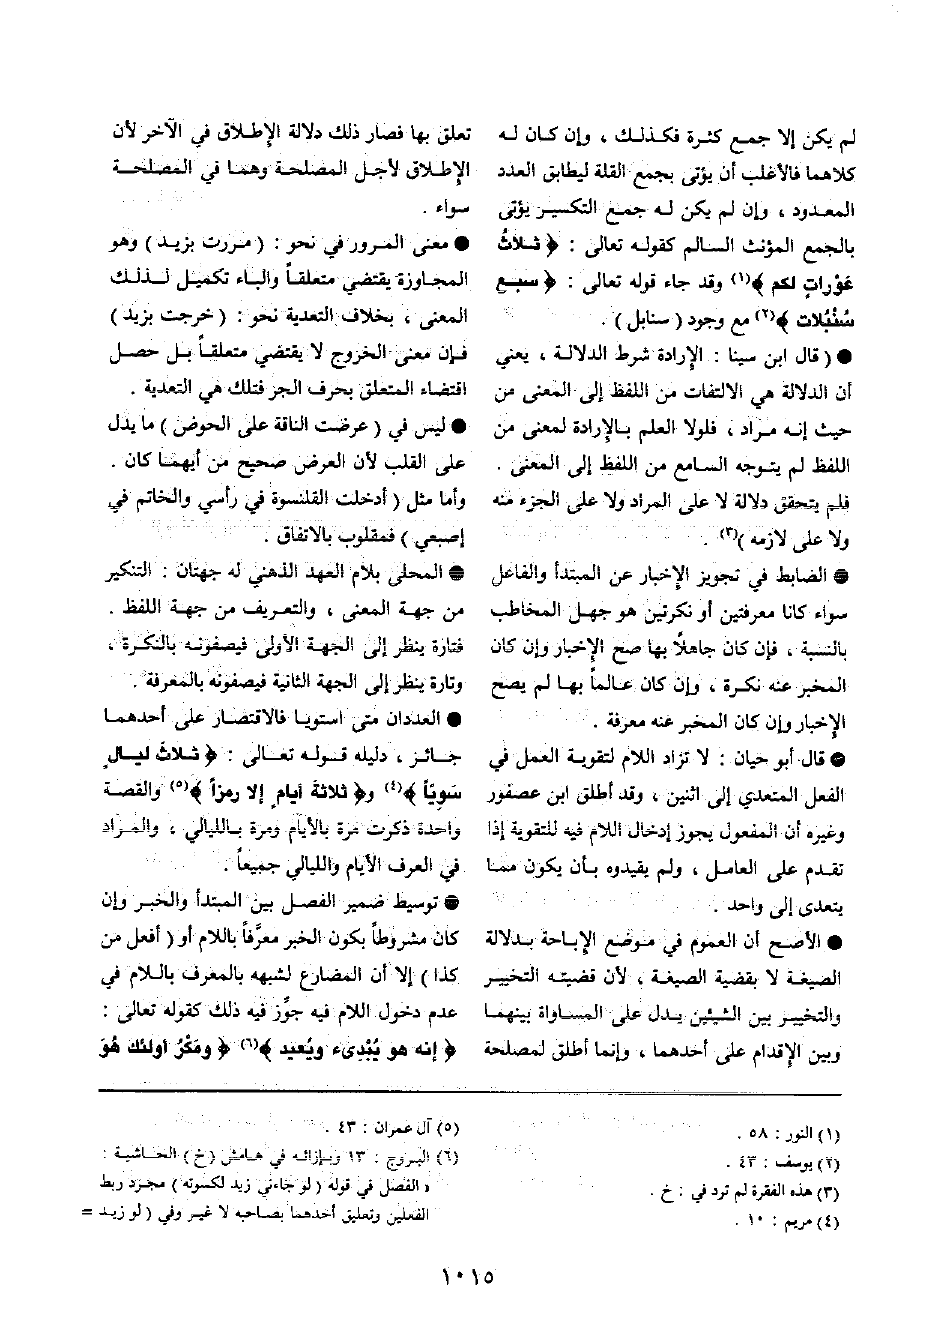 لم يكن إلا جمع كثرة فكذلك ، وإن كان له
كلاهما فالأغلب أن يؤتى بجمع القلة ليطابق العدد
المعدود ، وإن لم يكن له جمع التكسير يؤتى
بالجمع المؤنث السالم كقوله تعالى : ﴿ ثلاثُ
عَوْراتٍ لكم ﴾(١) وقد جاء قوله تعالى : ﴿ سبع
سُنْبُلات ﴾(٢) مع وجود ( سنابل ) .
● ( قال ابن سينا : الإرادة شرط الدلالة ، يعني
أن الدلالة هي الالتفات من اللفظ إلى المعنى من
حيث إنه مراد ، فلولا العلم بالإرادة لمعنى من
اللفظ لم يتوجه السامع من اللفظ إلى المعنى .
فلم يتحقق دلالة لا على المراد ولا على الجزء منه
ولا على لازمه )(٣) .
● الضابط في تجويز الإخبار عن المبتدأ والفاعل
سواء كانا معرفتين أو نكرتين هو جهل المخاطب
بالنسبة ، فإن كان جاهلاً بها صح الإخبار وإن كان
المخبر عنه نكرة ، وإن كان عالماً بها لم يصح
الإخبار وإن كان المخبر عنه معرفة .
● قال أبو حيان : لا تزاد اللام لتقوية العمل في
الفعل المتعدي إلى اثنين ، وقد أطلق ابن عصفور
وغيره أن المفعول يجوز إدخال اللام فيه للتقوية إذا
تقدم على العامل ، ولم يقيدوه بأن يكون مما
يتعدى إلى واحد .
● الأصح أن العموم في موضع الإباحة بدلالة
الصيغة لا بقضية الصيغة ، لأن قضيته التخيير
والتخيير بين الشيئين يدل على المساواة بينهما
وبين الإقدام على أحدهما ، وإنما أطلق لمصلحة
تعلق بها فصار ذلك دلالة الإطلاق في الآخر لأن
الإطلاق لأجل المصلحة وهما في المصلحة
سواء .
● معنى المرور في نحو : ( مررت بزيد ) وهو
المجاوزة يقتضي متعلقاً والباء تكميل لذلك
المعنى ، بخلاف التعدية نحو : ( خرجت بزيد )
فإن معنى الخروج لا يقتضي متعلقاً بل حصل
اقتضاء المتعلق بحرف الجر فتلك هي التعدية .
● ليس في ( عرضت الناقة على الحوض ) ما يدل
على القلب لأن العرض صحيح من أيهما كان .
وأما مثل ( أدخلت القلنسوة في رأسي والخاتم في
إصبعي ) فمقلوب بالاتفاق .
● المحلى بلام العهد الذهني له جهتان : التنكير
من جهة المعنى ، والتعريف من جهة اللفظ .
فتارة ينظر إلى الجهة الأولى فيصفونه بالنكرة ،
وتارة ينظر إلى الجهة الثانية فيصفونه بالمعرفة .
● العددان متى استويا فالاقتصار على أحدهما
جائز ، دليله قوله تعالى : ﴿ ثلاثَ ليالٍ
سَوِيّاً ﴾(٤) و﴿ ثلاثةَ أيامٍ إلا رمزاً ﴾(٥) والقصة
واحدة ذكرت مرة بالأيام ومرة بالليالي ، والمراد
في العرف الأيام والليالي جميعاً .
● توسيط ضمير الفصل بين المبتدأ والخبر وإن
كان مشروطاً بكون الخبر معرَّفاً باللام أو ( أفعل من
كذا ) إلا أن المضارع لشبهه بالمعرف باللام في
عدم دخول اللام فيه جوِّز فيه ذلك كقوله تعالى :
﴿ إنه هو يُبْدِىء ويُعيد ﴾(٦) ﴿ ومَكْرُ أولئك هُوَ
(١) النور : ٥٨ .
(٢) يوسف : ٤٣ .
(٣) هذه الفقرة لم ترد في : خ .
(٤) مريم : ١٠ .
(٥) آل عمران : ٤٣ .
(٦) البروج : ١٣ وبإزائه في هامش ( خ ) الحاشية :
« الفصل في قوله ( لو جاءني زيد لكسوته ) مجرد ربط
الفعلين وتعليق أحدهما بصاحبه لا غير وفي ( لو زيد =
١٠١٥